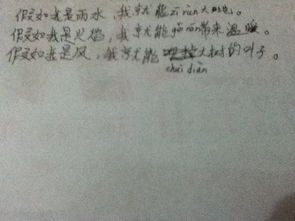 假如我是雨水，我就能zī rùn大地。
假如我是火焰，我就能带来温暖。
假如我是风，我就能大树的叶子。
chuī diàn